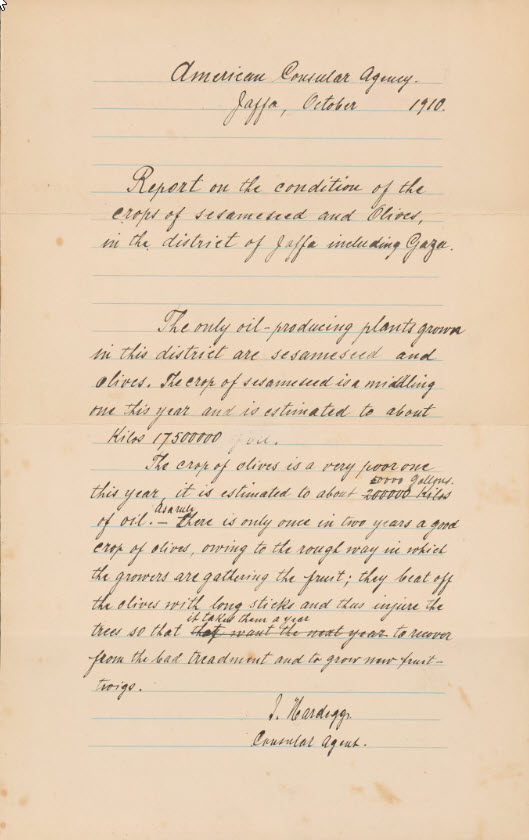 American Consular Agency.
Jaffa, October 1910.
Report on the condition of the
crops of sesameseed and Olives,
in the district of Jaffa including Gaza.
The only oil-producing plants grown
in this district are sesameseed and
olives. The crop of sesameseed is a middling
one this year and is estimated to about
Kilos 17500000
The crop of olives is a very poor one
gallons.
this year, it is estimated to about 200000 Kilos
As a rule
of oil. — there is only once in two years a good
crop of olives, owing to the rough way in which
the growers are gathering the fruit; they beat off
the olives with long sticks and thus injure the
it takes them a year
trees so that that want the next year to recover
from the bad treatment and to grow new fruit-
twigs.
J. Hardegg.
Consular Agent.